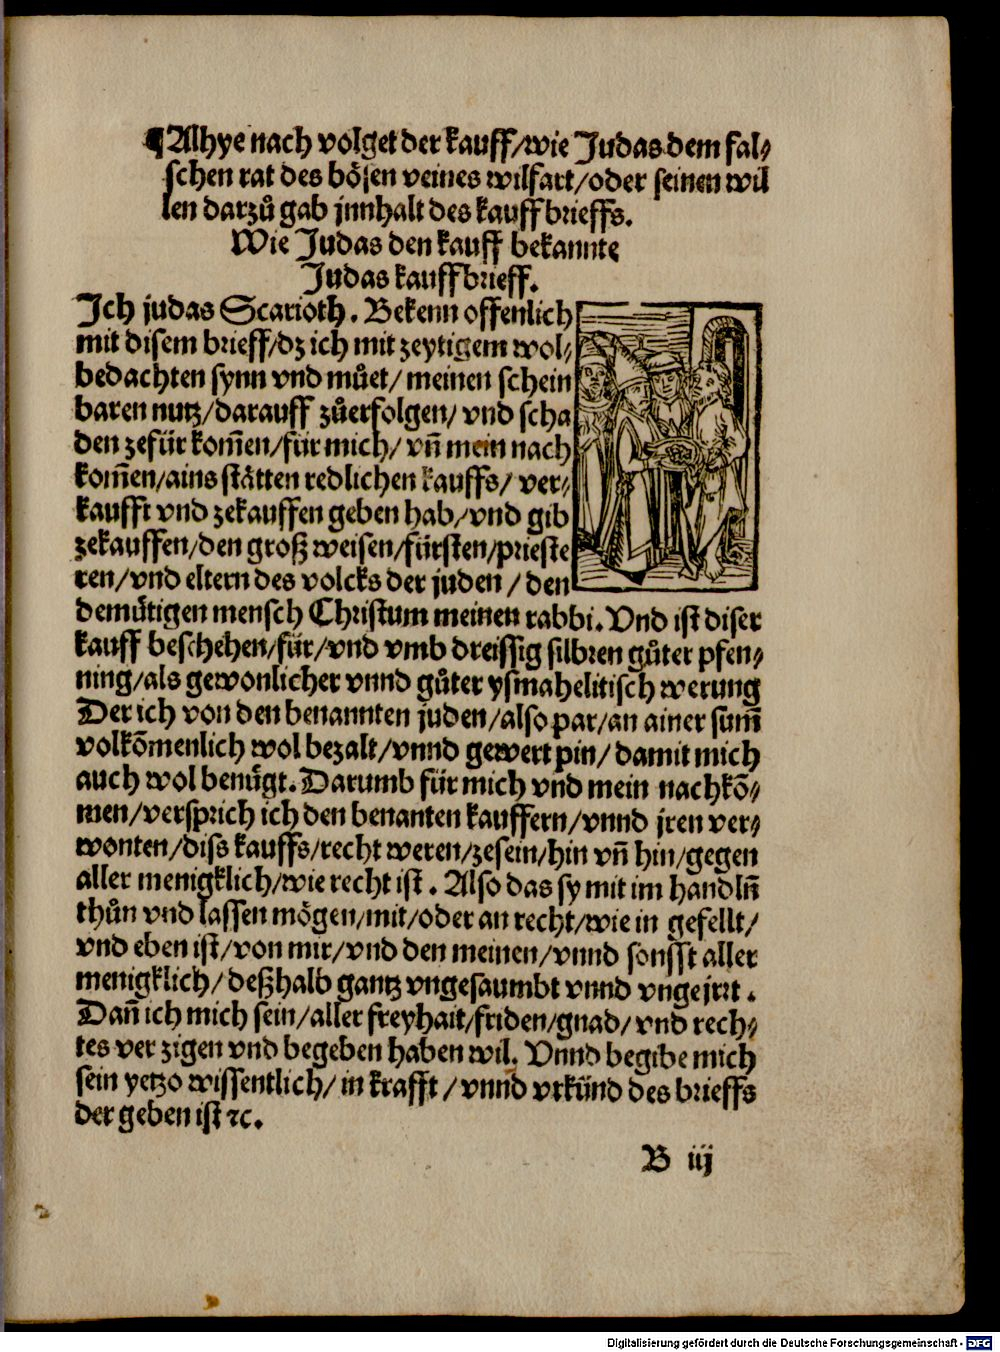 ¶ Alhye nach volget der kauff/wie Judas dem fal⸗
schen rat des bösen veines wilfart/oder seinen wil
len darzů gab jnnhalt des kauffbrieffs.
Wie Judas den kauff bekannte
Judas kauffbrieff.
Ich judas Scarioth. Bekenn offenlich
mit disem brieff/dz ich mit zeytigem wol⸗
bedachten synn vnd můet/ meinen schein
baren nutz/darauff zůerfolgen/ vnd scha
den zefür kom̄en/für mich/ vn̄ mein nach
kom̄en/ains stätten redlichen kauffs/ ver⸗
kaufft vnd zekauffen geben hab/vnd gib
zekauffen/den groß weisen/fürsten/prieste
ren/vnd eltern des volcks der juden / den
demütigen mensch Christum meinen rabbi. Vnd ist diser
kauff beschehen/für/vnd vmb dreissig silbren gůter pfen⸗
ning/als gewonlicher vnnd gůter ysmahelitisch werung
Der ich von den benannten juden/also par/an ainer sum̄
volkōmenlich wol bezalt/vnnd gewert pin/ damit mich
auch wol benügt. Darumb für mich vnd mein nachkō⸗
men/versprich ich den benanten kauffern/vnnd jren ver⸗
wonten/diss kauffs/recht weren/zesein/hin vn̄ hin/gegen
aller menigklich/wie recht ist . Also das sy mit im handln̄
thůn vnd lassen mögen/mit/oder an recht/wie in gefellt/
vnd eben ist/von mir/vnd den meinen/vnnd sonsst aller
menigklich/deßhalb gantz vngesaumbt vnnd vngejrrt .
Dan̄ ich mich sein/aller freyhait/friden/gnad/ vnd rech⸗
tes ver zigen vnd begeben haben wil. Vnnd begibe mich
sein yetzo wissentlich/ in krafft / vnnd vrkünd des brieffs
der geben ist ⁊c.
B iij
Digitalisierung gefördert durch die Deutsche Forschungsgemeinschaft - DFG